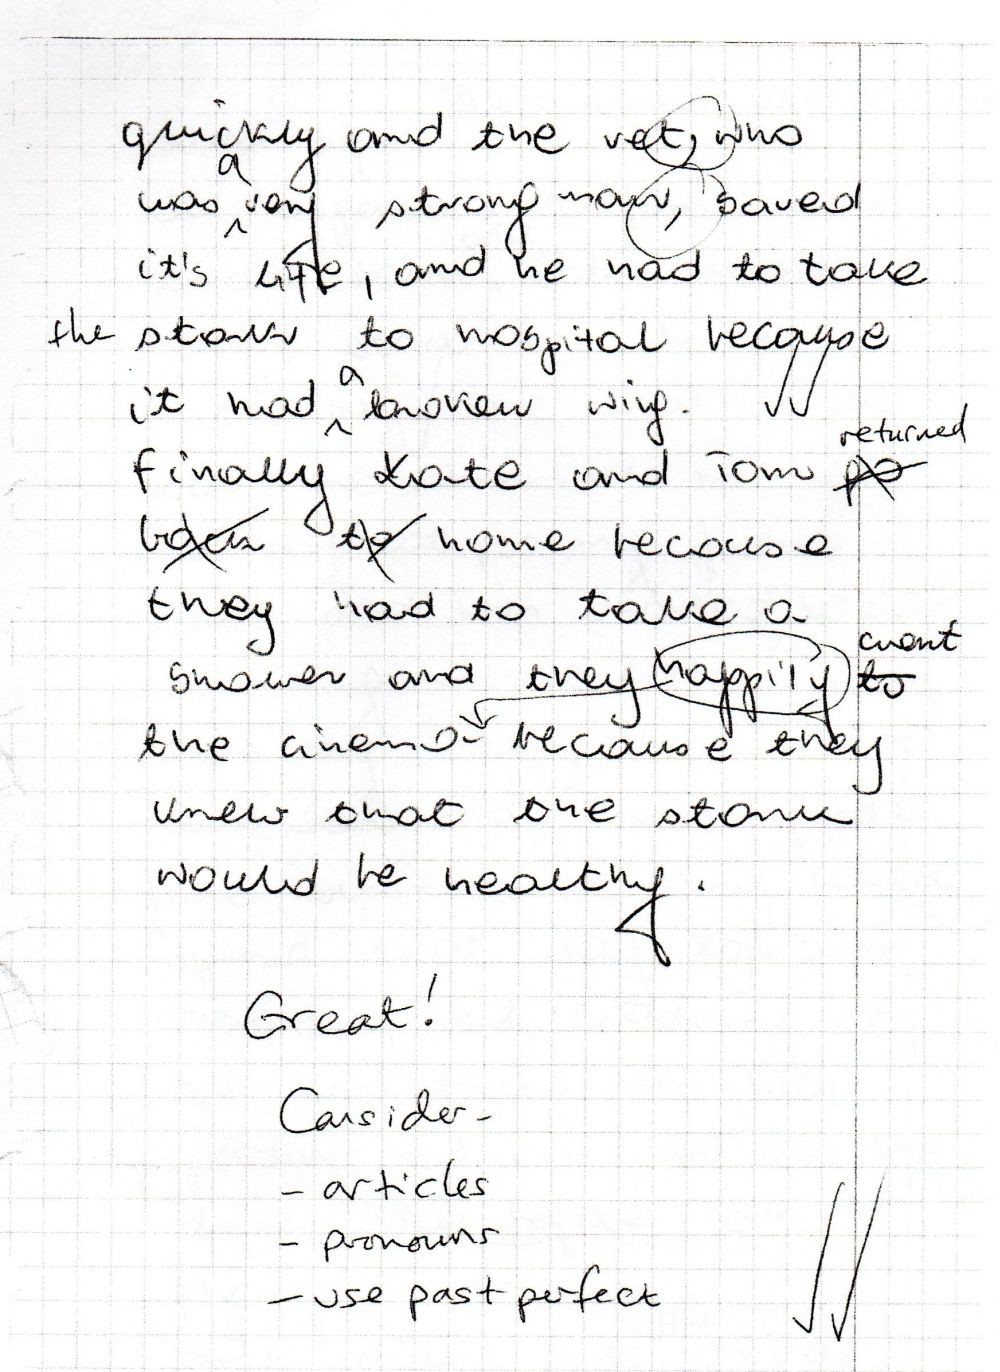 quickly and the vet, who
was a very strong man, saved
it's life, and he had to take
the stork to hospital because
it had a broken wing.
returned
Finally Kate and Tom go
back to home because
they had to take a
went
shower and they happily to
the cinema because they
knew that the stork
would be healthy.
Great!
Consider -
- articles
- pronouns
- use past perfect